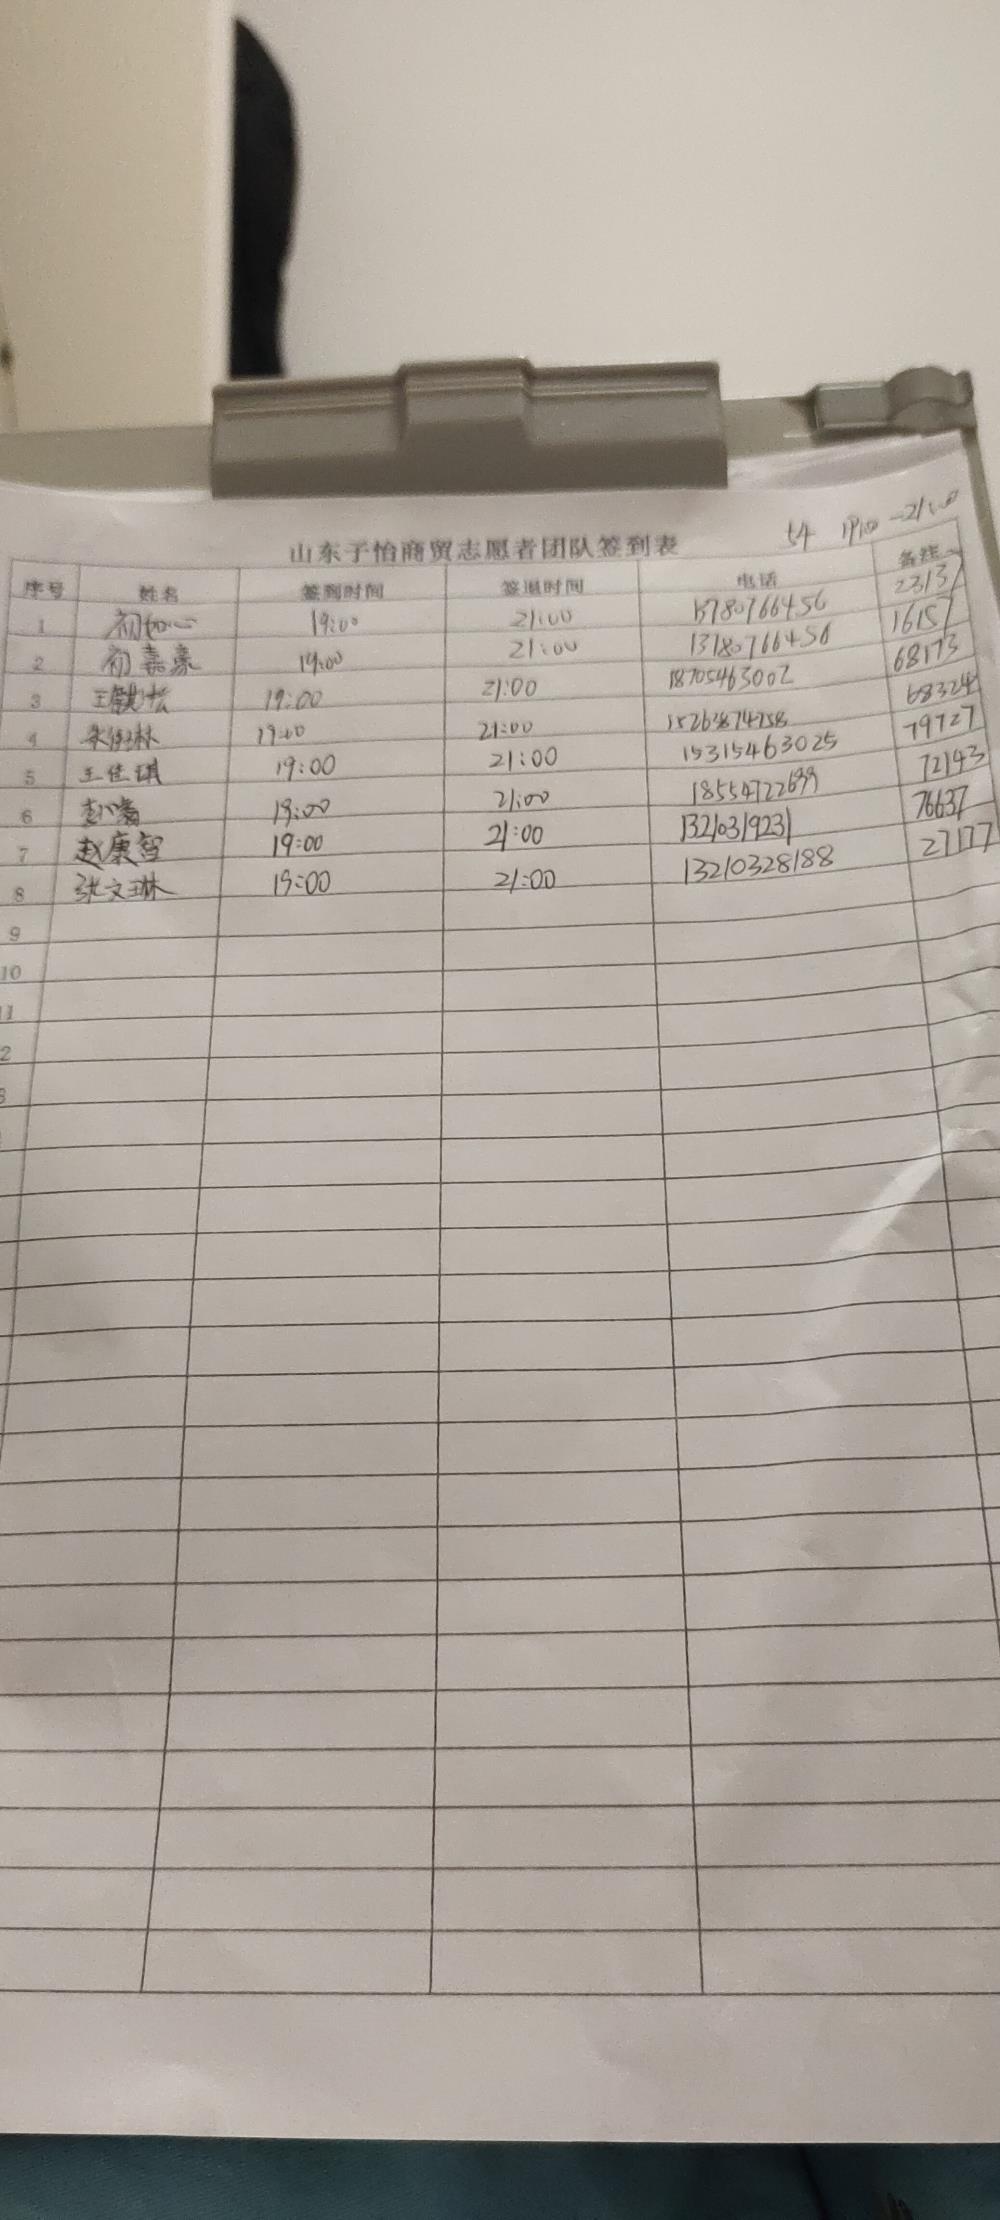 54 19:00-21:00
山东子怡商贸志愿者团队签到表
序号 姓名 签到时间 签退时间 电话 备注
1 初如心 19:00 21:00 15780766456 23137
2 初嘉豪 19:00 21:00 13780766456 16157
3 王 19:00 21:00 18705463002 68173
4 朱 林 19:00 21:00 15263874758 68324
5 王佳琪 19:00 21:00 15315463025 79727
6 19:00 21:00 18554722699 72143
7 赵康智 19:00 21:00 13210319231 76637
8 张文琳 19:00 21:00 13210328188 27177
9
10